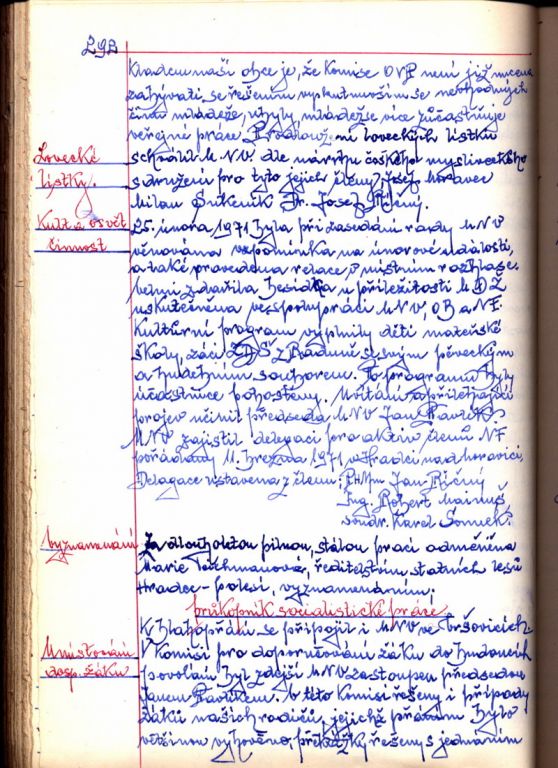 292
Kladem naší obce je, že Komise OVP není již nucena
zabývati se řešením výskutnosim se nevhodných
živlů mládeže, nýbrž, mládež se více zúčastňuje
veřejné práce. Prodloužení loveckých lístků
Lovecké
lístky.
schválil MNV dle návrhu českého mysliveckého
sdružení pro tyto jejich členy, Josef Moravec
Milan Dr. Josef
Kult. a osvět
činnost
25. února 1971 byla při zasedání rady MNV
věnována vzpomínka na únorové události,
a také provedena relace v místním rozhlase.
Velmi zdařilá besídka u příležitosti MDŽ
uskutečněna ve spolupráci MNV, OB a NF.
Kulturní program vyplnily děti mateřské
školy, žáci ZDŠ z Raduně se svým pěveckým
a hudebním souborem. Po programu byly
účastnice pohoštěny. Uvítání a příležitostní
projev učinil předseda MNV Jan Pavlík.
MNV zajistil delegaci pro aktiv členů NF
pořádaný 11. března 1971 v Hradci nad Moravicí,
Delagace sestavena z členů: Jan Říčný
Ing. Robert
soudr. Karel
Vyznamenání
Za dlouholetou pilnou, stálou prací odměněna
Marie ředitelstvím, státních lesů
Hradec-polesí, vyznamenáním,
průkopník socialistické práce
K blahopřání se připojil i MNV, ve Bršovicích
Umisťování
dosp. žáků
V komisi pro doporučování žáků do budoucích
povolání byl zdejší MNV zastoupen předsedou
Janem Pavlíkem. V této komisi řešeny i případy
žáků našich rodičů, jejichž přáním bylo
většinou vyhověno, překážky řešeny s jednáním